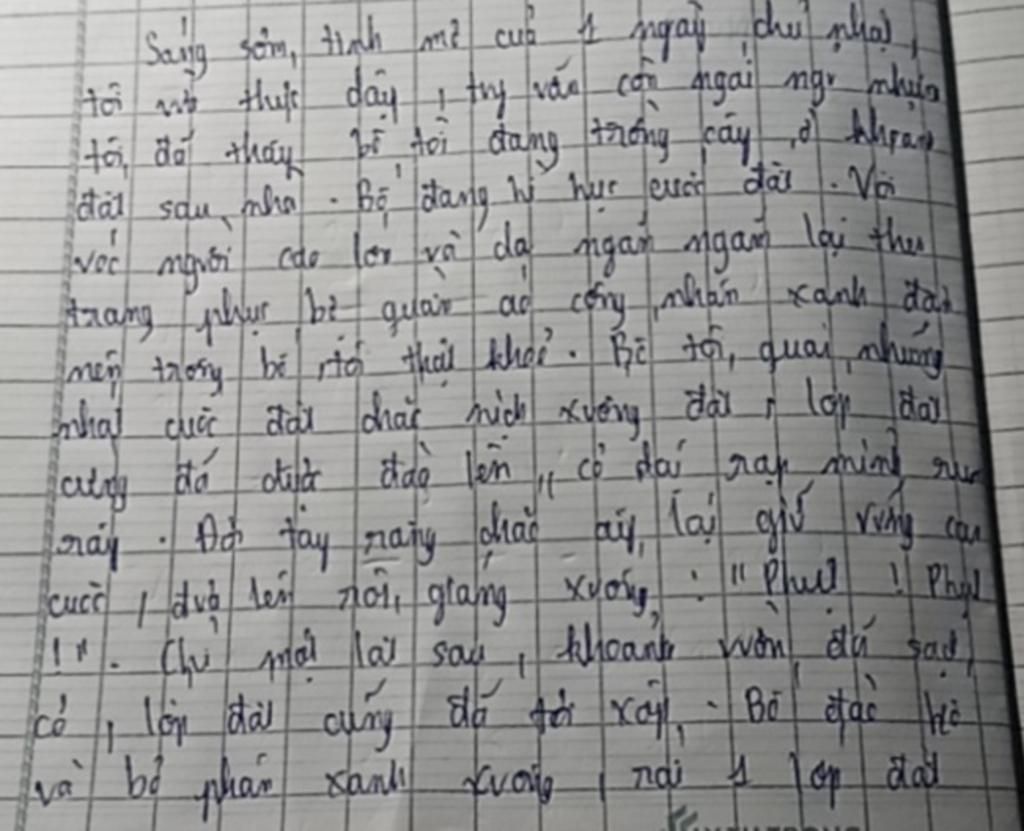 Sáng sớm, tinh mơ của 1 ngày chủ nhật,
tôi thức dậy, tuy vẫn còn ngái ngủ nhưng
tôi đã thấy bố tôi đang trồng cây ở khoảnh
đất sau nhà. Bố đang hì hục cuốc đất. Với
vóc người cao lớn và da ngăm ngăm lại thêm
trang phục bộ quần áo công nhân xanh đậm
trông bố tôi thật khoẻ. Bố tôi, quai những
nhát cuốc đất chắc nịch xuống đất, lớp đất
cứng đã được đào lên, cỏ dại rạp mình
. Đôi tay rắng chắc ấy, lại giữ vững cán
cuốc, đưa lên rồi, giáng xuống, : "Phụt ! Phụt
!". Chỉ một lát sau, khoảnh vườn đã sạch
cỏ, lớp đất cứng đã tơi xốp. Bố đào hố
và bỏ phân xanh xuống, rải 1 lớp đất